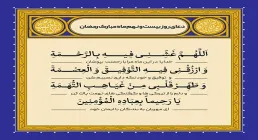 دعای روز بیست و نهم ماه مبارک رمضان
اللّهُمَّ غَشِّنی فیهِ بِالرَّحْمَةِ
خدایا در این ماه مرا به رحمتت بپوشان
وَ ارْزُقْنی فیهِ التَّوْفیقَ وَ الْعِصْمَةَ
و توفیق و خود
وَ طَهِّرْ قَلْبی مِنْ غَیاهِبِ التُّهَمَةِ
و دلم را از تیرگی ها و
یا رَحیماً بِعِبادِهِ الْمُؤْمِنینَ
ای مهربان به بندگان با ایمان خود